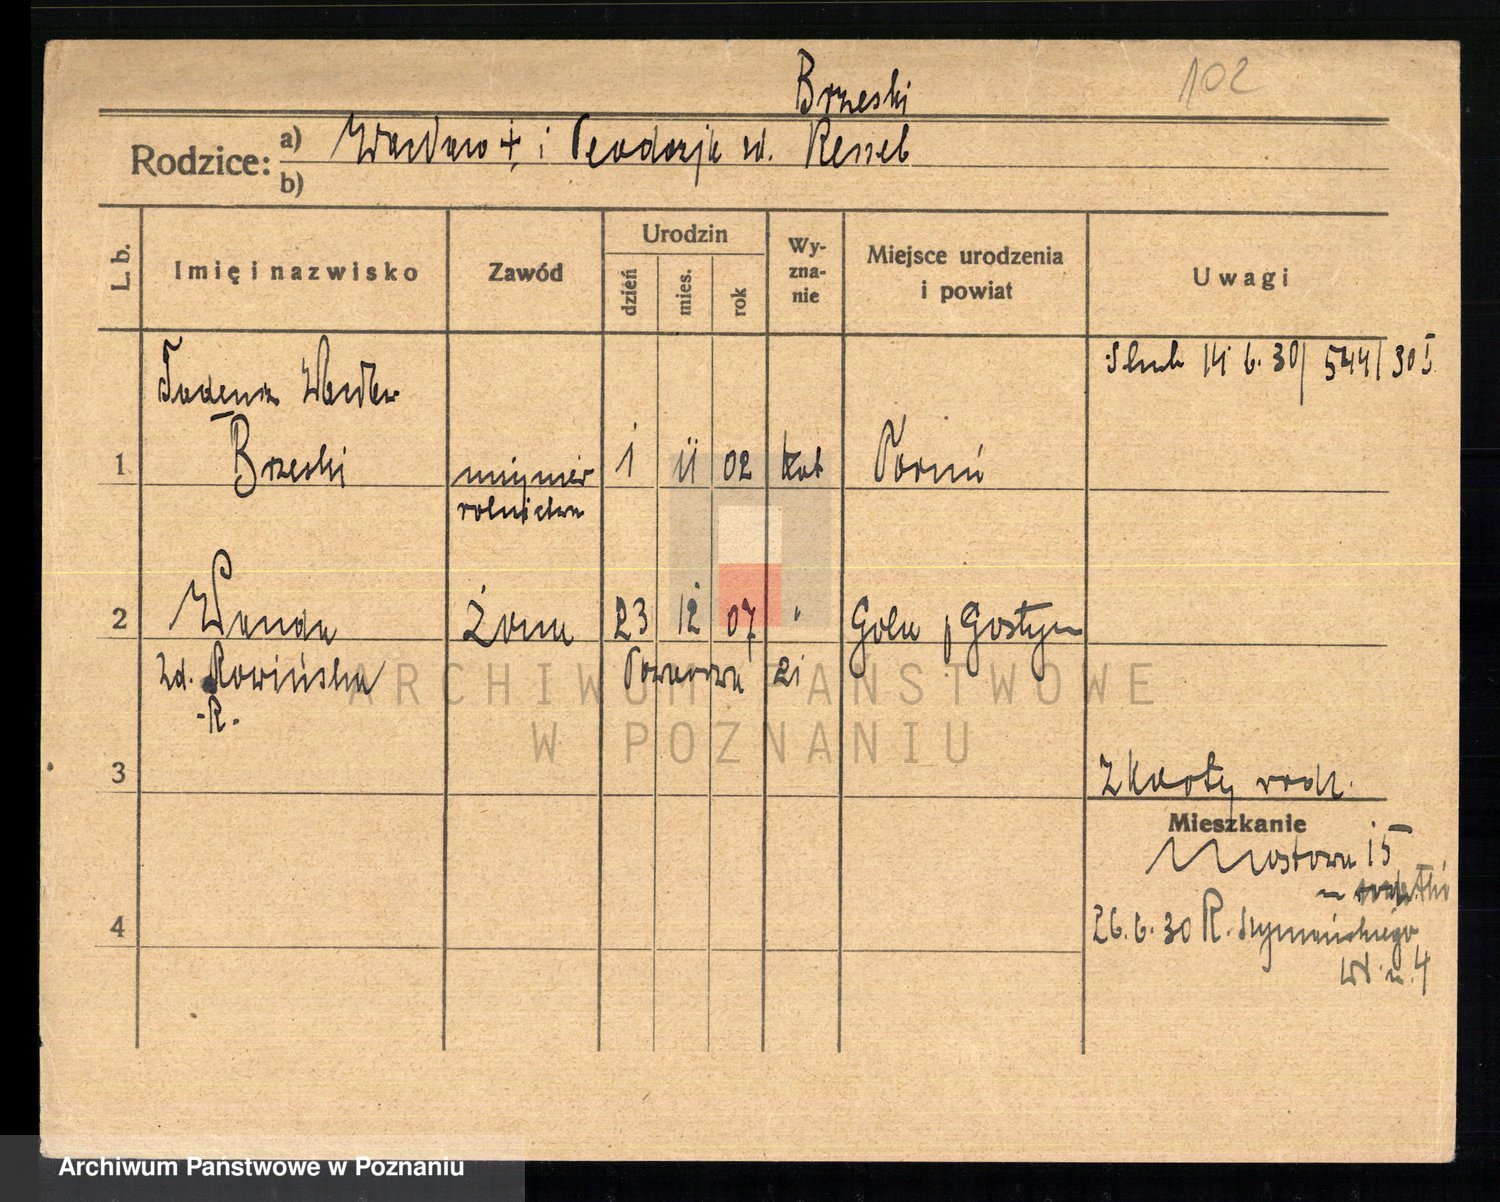 102
Brzeski
Rodzice: a) Wacław + i Teodozja zd. Kessel
b)
L. b.
Imię i nazwisko
Zawód
Urodzin
dzień
mies.
rok
Wy-
zna-
nie
Miejsce urodzenia
i powiat
Uwagi
Ślub 14 6. 30/ 544/30 I
Tadeusz
1 Brzeski inżynier 1 11 02 kat Toruń
rolnictwa
2 Wanda żona 23 12 07 " Gola p Gostyń
zd. Rowińska
-R.
3
Z karty rodz.
Mieszkanie
Mostowa 15
4
26. 6. 30 R. Szymańskiego
4
ARCHIWUM PAŃSTWOWE
W POZNANIU
Archiwum Państwowe w Poznaniu